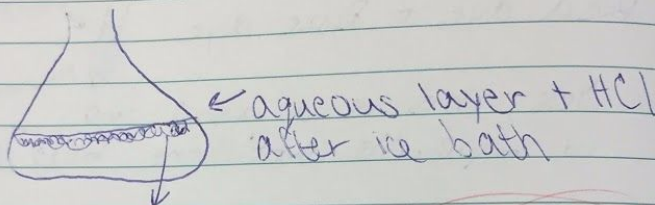 ← aqueous layer + HCl
after ice bath